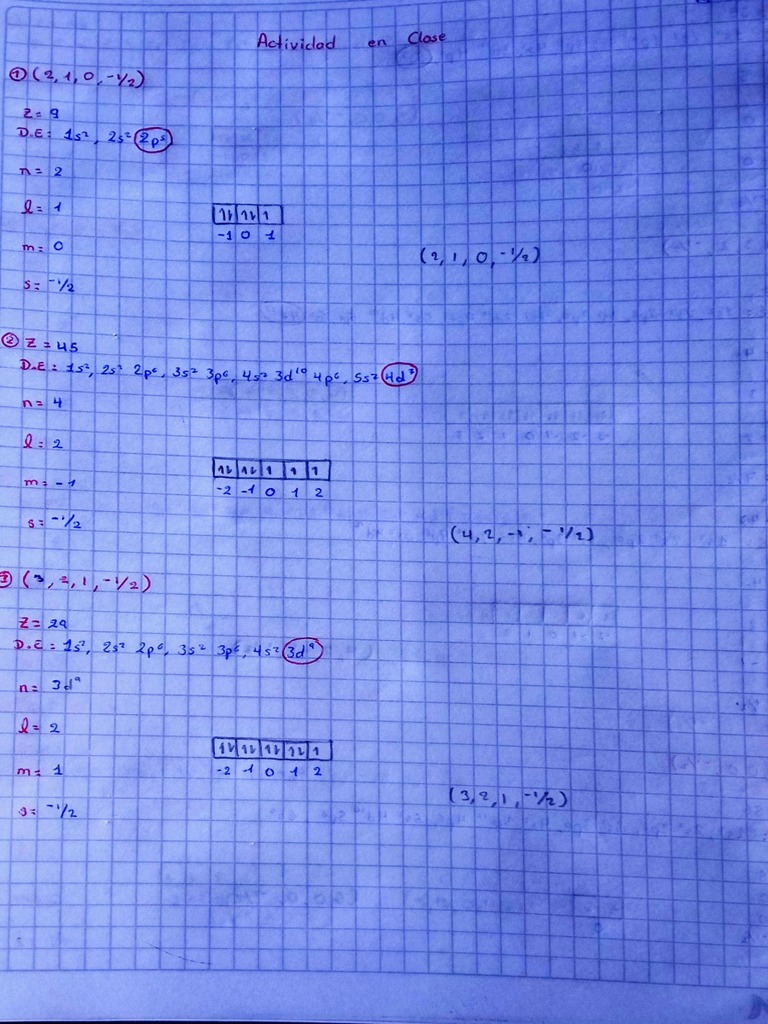 Actividad en Clase
① (2, 1, 0, -1/2)
Z = 9
D.E: 1s², 2s² 2p⁵
n = 2
l = 1
↿⇂ ↿⇂ ↿
-1 0 1
m = 0
(2, 1, 0, -1/2)
s = -1/2
② Z = 45
D.E = 1s², 2s² 2p⁶, 3s² 3p⁶, 4s² 3d¹⁰ 4p⁶, 5s² 4d⁷
n = 4
l = 2
↿⇂ ↿⇂ ↿ ↿ ↿
m = -1
-2 -1 0 1 2
s = -1/2
(4, 2, -1, -1/2)
③ (3, 2, 1, -1/2)
Z = 29
D.E: 1s², 2s² 2p⁶, 3s² 3p⁶, 4s² 3d⁹
n = 3d⁹
l = 2
↿⇂ ↿⇂ ↿⇂ ↿⇂ ↿
m = 1
-2 -1 0 1 2
(3, 2, 1, -1/2)
s = -1/2